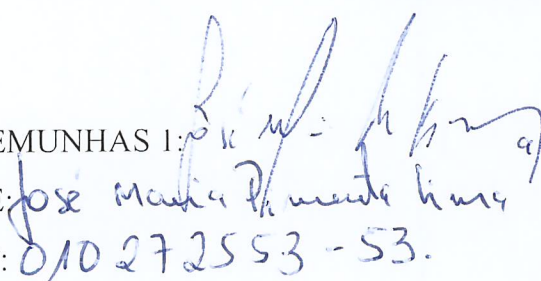 EMUNHAS 1:
: José Maria Pimenta Lima
: 010272553-53.